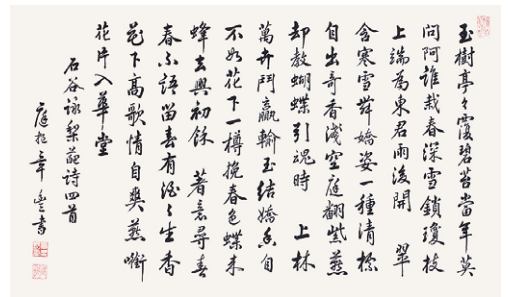 玉樹亭々覆碧苔當年莫
問阿誰栽春深雪鎖瓊枝
上端為東君雨後開 翠
含寒雪舞嬌姿一種清標
自出奇香淺空庭翻紫燕
却教蝴蝶引魂時 上林
萬卉鬥贏輸玉結嬌香自
不如花下一樽挽春色蝶來
蜂去興初餘 著意尋春
春不語留春有酒々生香
花下高歌情自爽燕啣
花片入華堂
石谷詠梨花詩四首
書